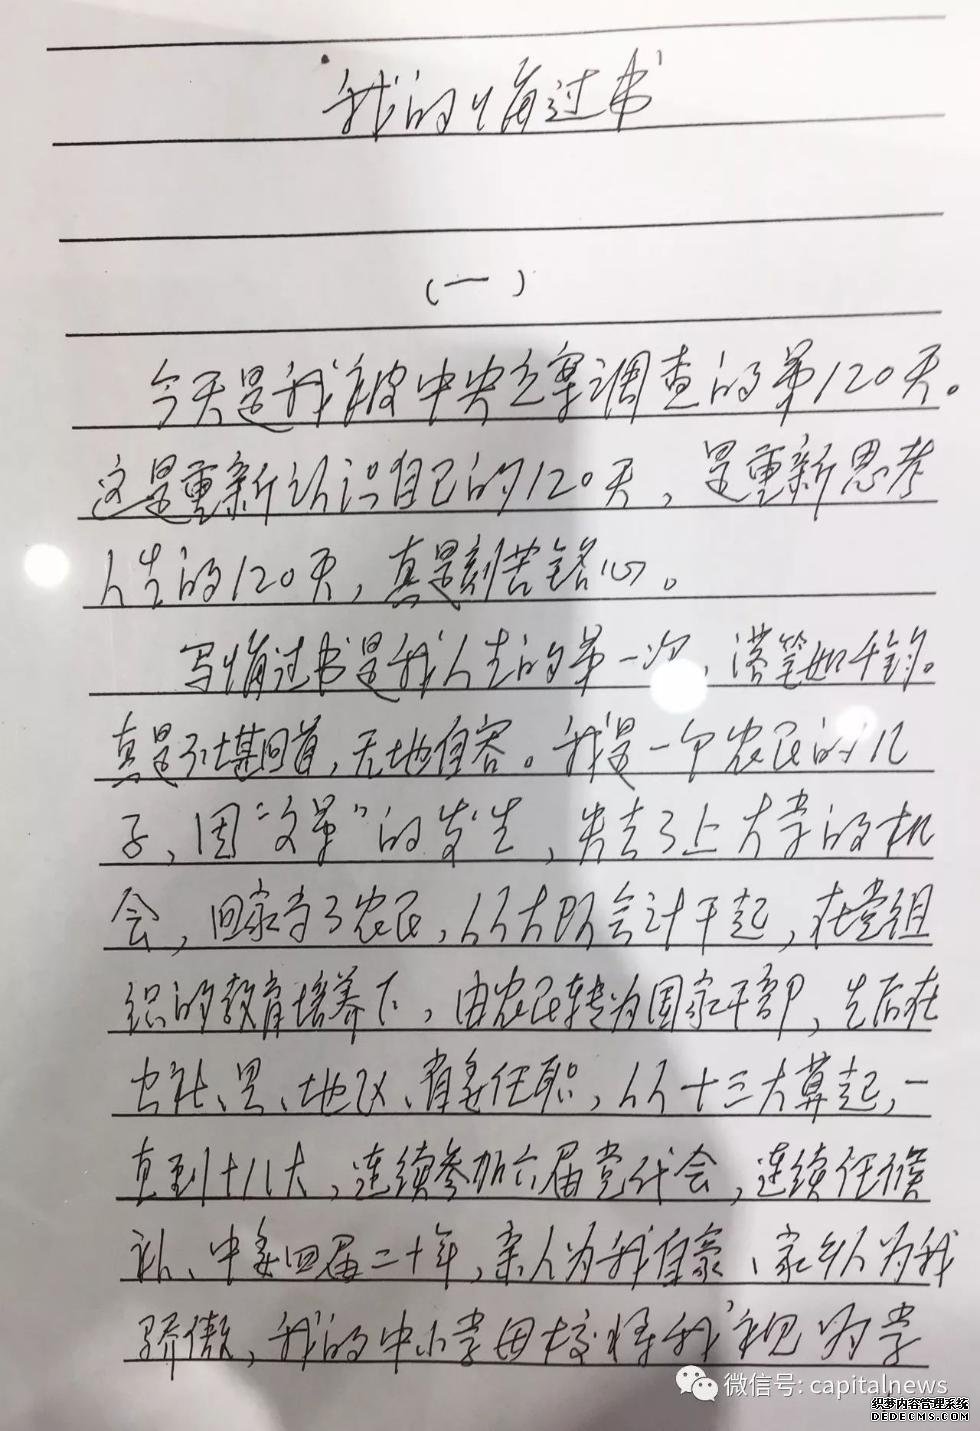 我的悔过书
(一)
今天是我被中央立案调查的第120天。
这是重新认识自己的120天，是重新思考
人生的120天，真是刻苦铭心。
写悔过书是我人生的第一次，落笔如千钧。
真是不堪回首，无地自容。我是一个农民的儿
子，因“文革”的发生，失去了上大学的机
会，回家当了农民，从大队会计干起，在党组
织的教育培养下，由农民转为国家干部，先后在
公社、县、地区、省委任职，从十三大算起，一
直到十八大，连续参加六届党代会，连续任候
补、中委四届二十年，亲人为我自豪、家乡人为我
骄傲，我的中小学母校将我视为学
微信号: capitalnews
织梦内容管理系统
DEDECMS.COM